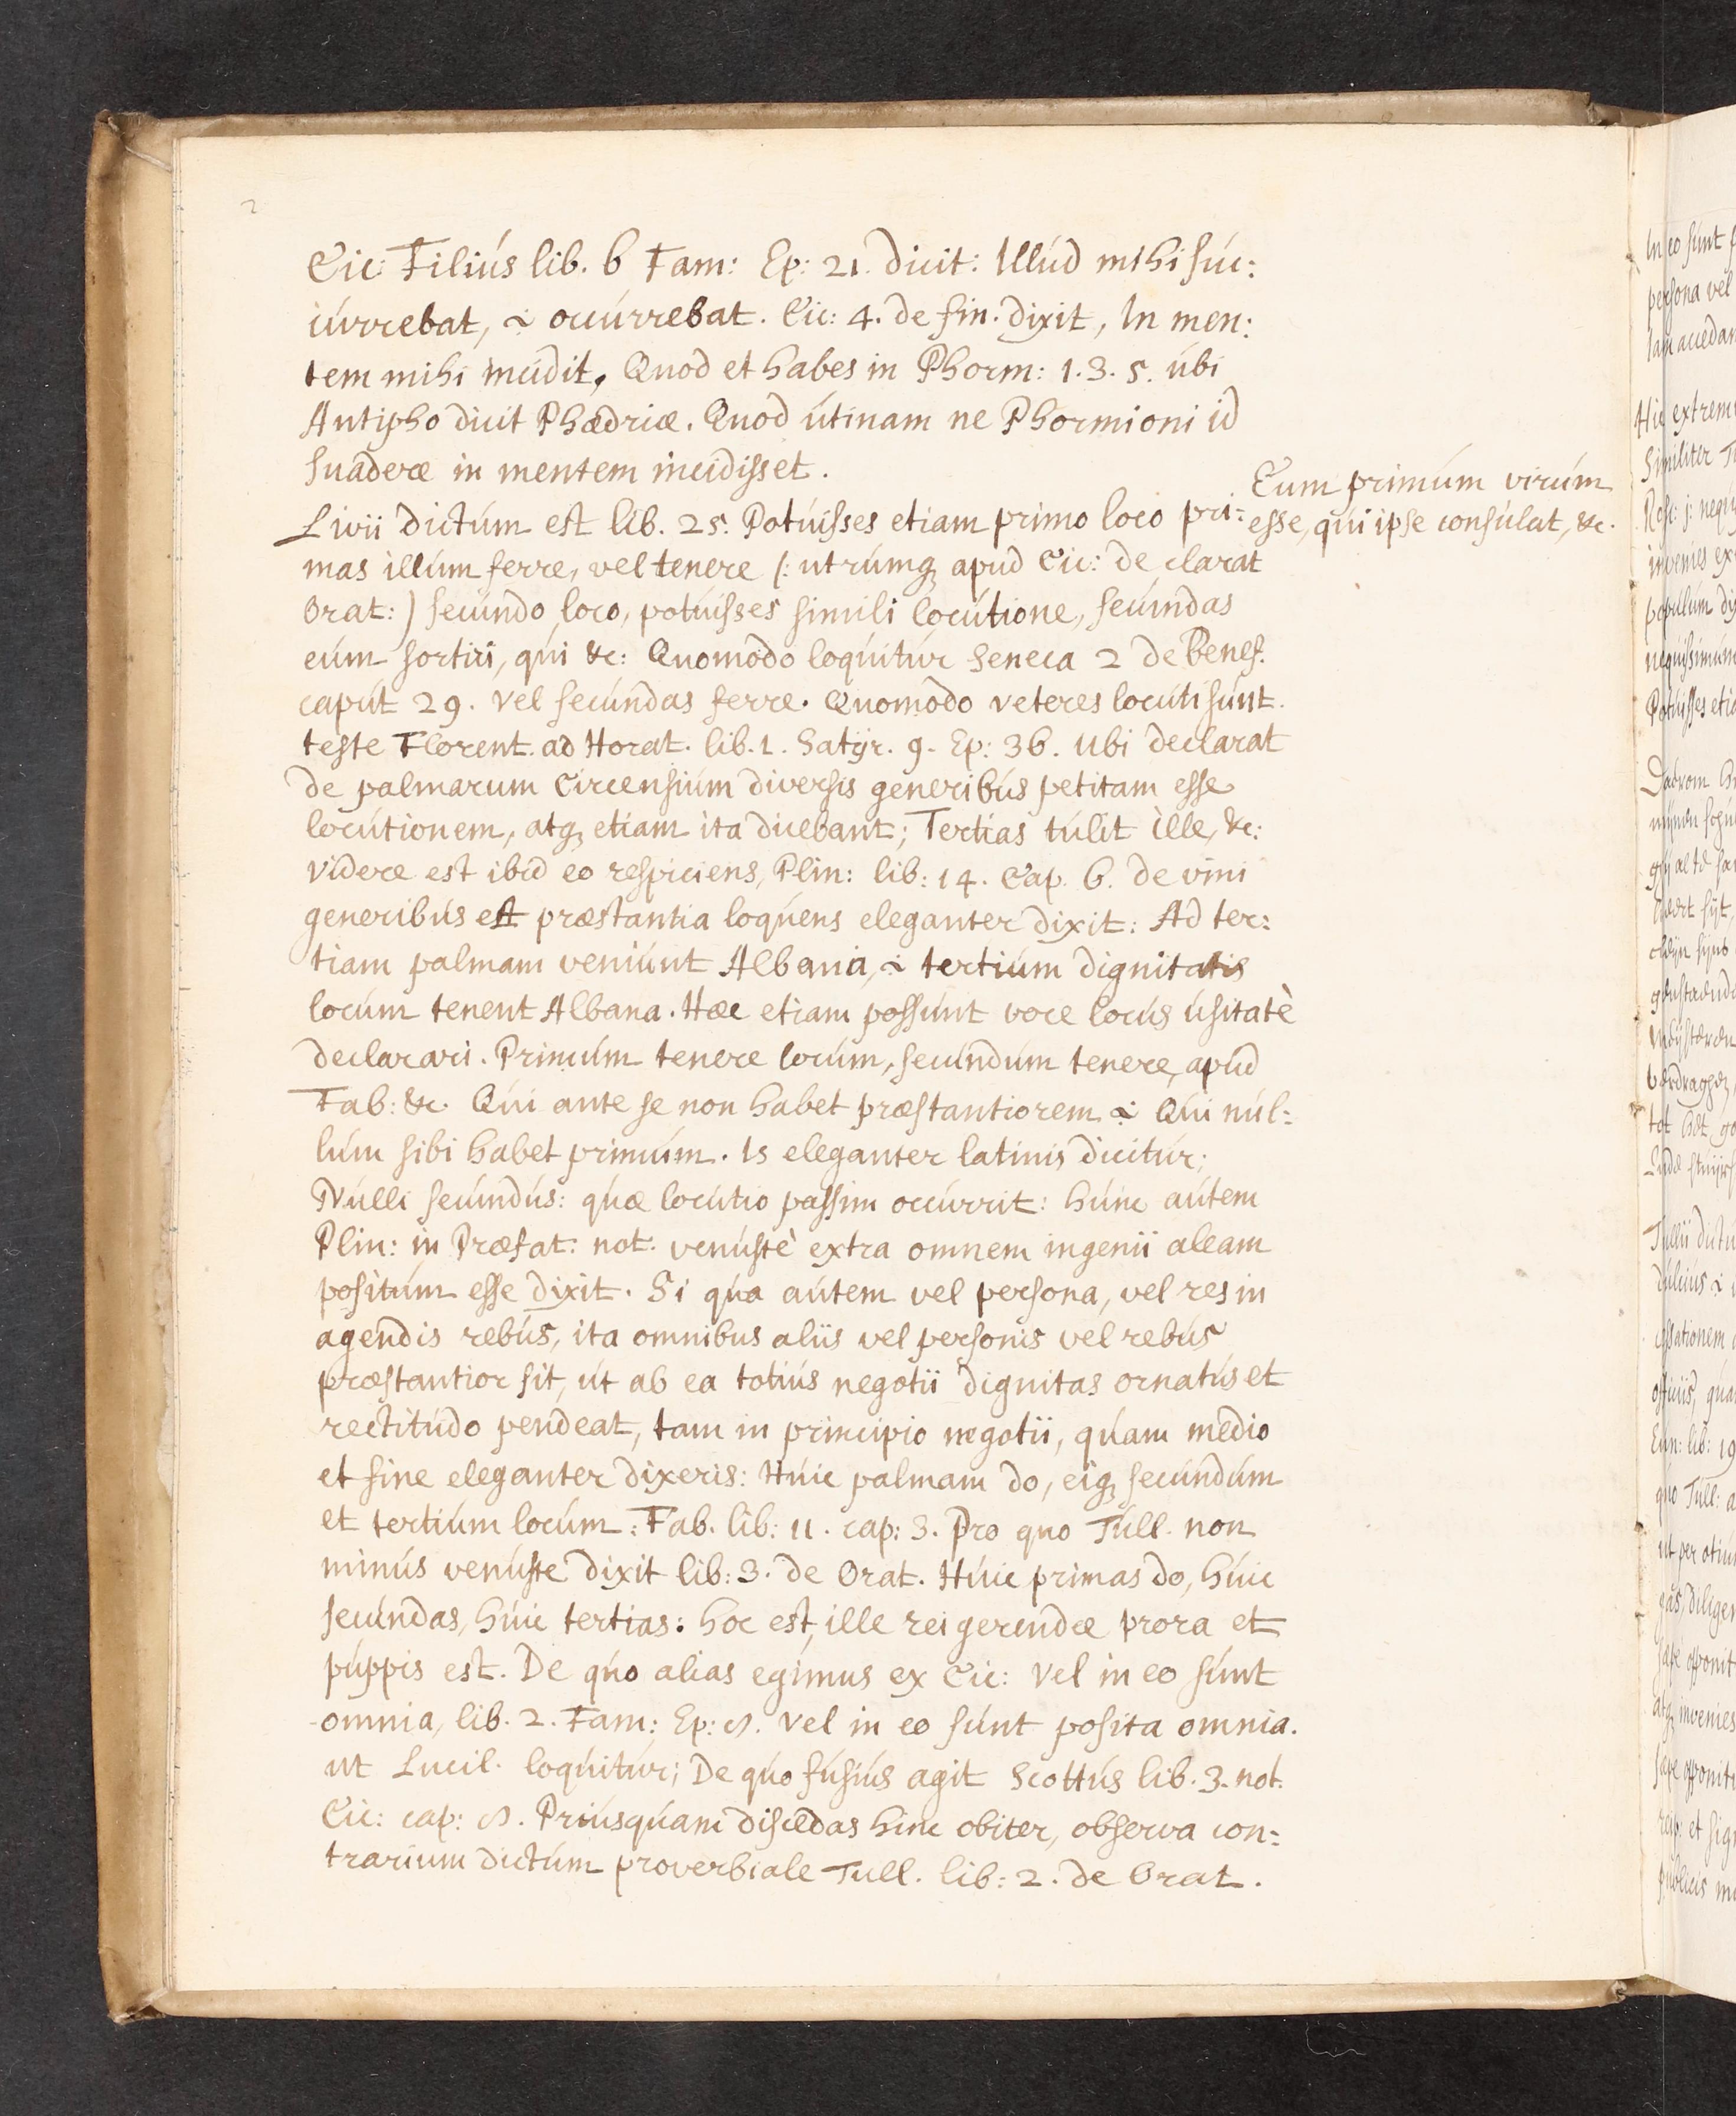 2
Cic: Filius lib. 6 Fam: Ep: 21. Dicit: Illud mihi suc:
currebat, i occurrebat. Cic: 4. de fin. dixit, In men:
tem mihi incidit, Quod et habes in Phorm: 1. 3. 5. ubi
Antipho dicit Phædriæ. Quod utinam ne Phormioni id
suadere in mentem incidisset.
Eum primum virum
esse, qui ipse consulat, &c.
Livii dictum est lib. 25. Potuisses etiam primo loco pri:
mas illum ferre, vel tenere (: utrumq apud Cic: de clarat
Orat:) secundo loco, potuisses simili locutione, secundas
eum sortiri, qui &c: Quomodo loquitur Seneca 2 de Benef.
caput 29. vel secundas ferre. Quomodo veteres locuti sunt.
teste Florent. ad Horat. lib. 1. Satyr. 9. Ep: 36. ubi declarat
de palmarum Circensium diversis generibus petitam esse
locutionem, atq etiam ita dicebant; Tertias tulit ille, &c:
videre est ibid eo respiciens, Plin: lib: 14. Cap. 6. de vini
generibus et præstantia loquens eleganter dixit: Ad ter:
tiam palmam veniunt Albana, i tertium dignitatis
locum tenent Albana. Hæc etiam possunt voce locus usitatè
declarari. Primum tenere locum, secundum tenere, apud
Fab: &c. Qui ante se non habet præstantiorem i Qui nul:
lum sibi habet primum. Is eleganter latinis dicitur;
Nulli secundus: quæ locutio passim occurrit: hunc autem
Plin: in Præfat: not. venustè extra omnem ingenii aleam
positum esse dixit. Si qua autem vel persona, vel res in
agendis rebus, ita omnibus aliis vel personis vel rebus
præstantior sit, ut ab ea totius negotii dignitas ornatus et
rectitudo pendeat, tam in principio negotii, quam medio
et fine eleganter dixeris: Huic palmam do, eiq secundum
et tertium locum: Fab. lib: 11. cap: 3. Pro quo Tull. non
minus venuste dixit lib: 3. de Orat. Huic primas do, huic
secundas, huic tertias: hoc est, ille rei gerendæ prora et
puppis est. De quo alias egimus ex Cic: vel in eo sunt
omnia, lib. 2. Fam: Ep: vel in eo sunt posita omnia.
ut Lucil. loquitur; De quo fusius agit Scottus lib. 3. not.
Cic: cap: Priusquam discedas hinc obiter, observa con:
trarium dictum proverbiale Tull. lib: 2. de Orat.